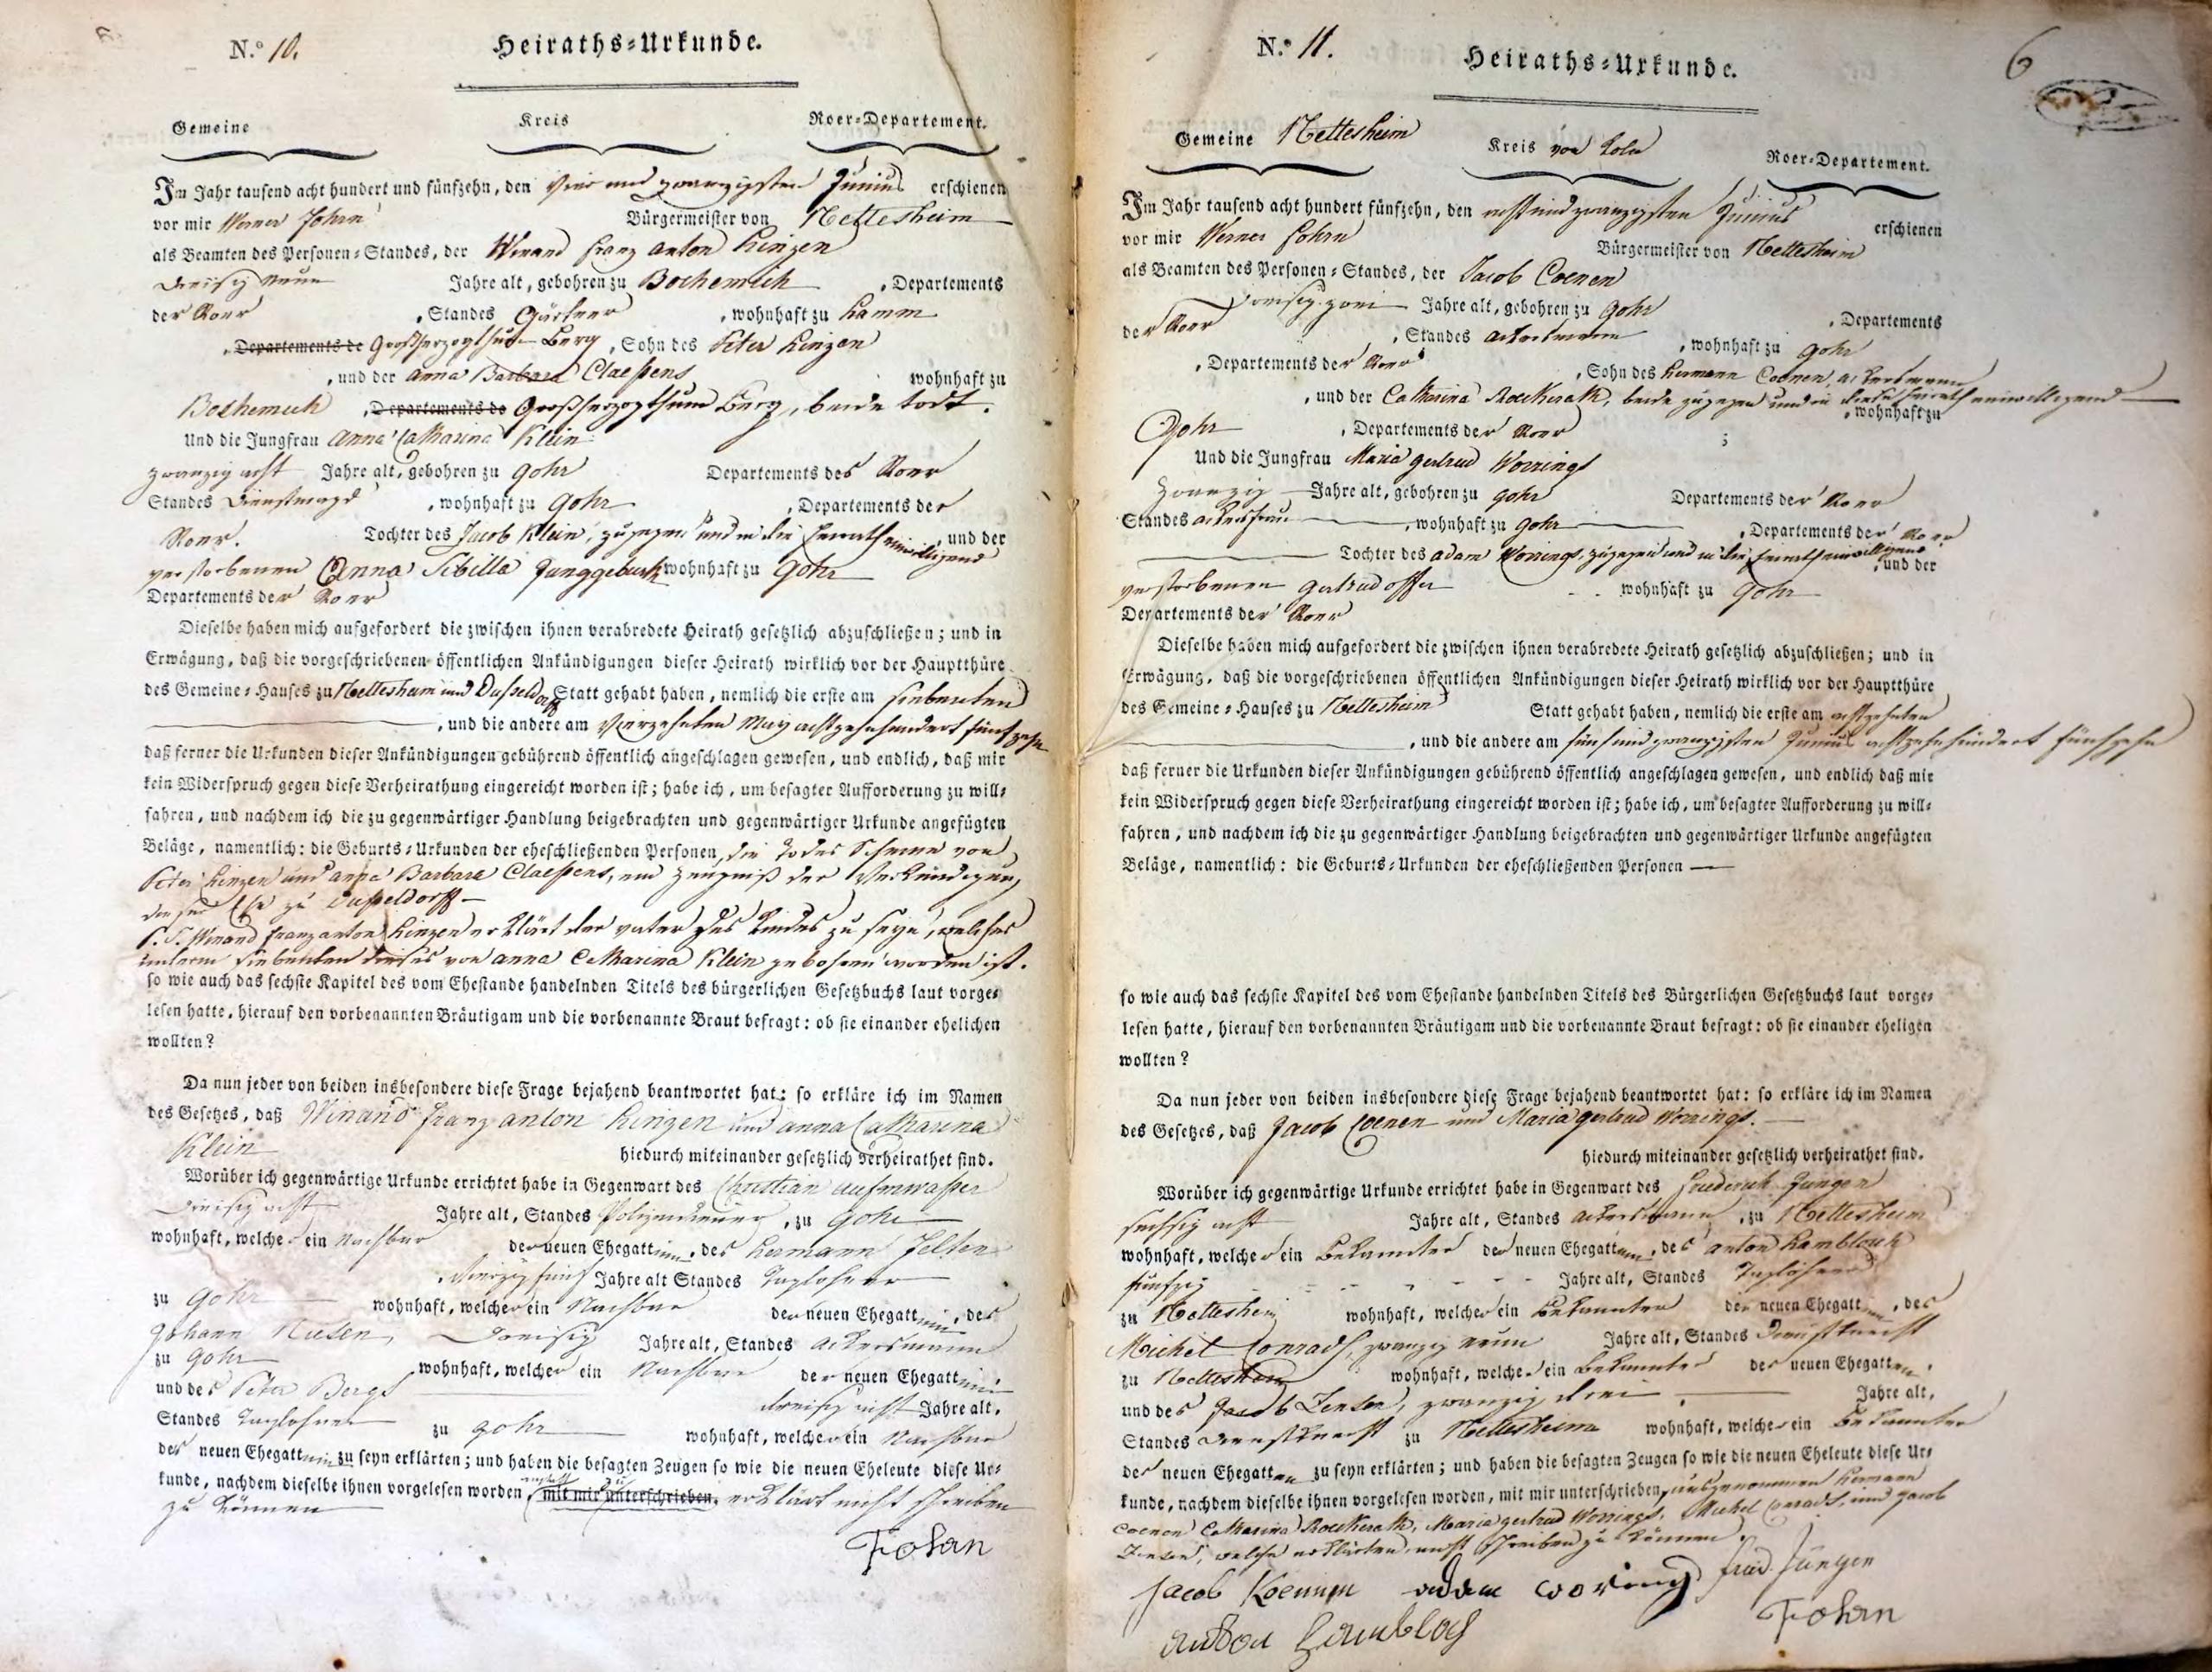 N.º 10.
Heiraths-Urkunde.
Gemeine Kreis Roer-Departement.
Im Jahr tausend acht hundert und fünfzehn, den vier und zwanzigsten Junius erschienen
vor mir Werner Fohrn Bürgermeister von Nettesheim
als Beamten des Personen-Standes, der Winand Franz Anton Hinzen
dreisig neun Jahre alt, gebohren zu Bochemich, Departements
der Roer, Standes Gärtner, wohnhaft zu Hamm
, Departements de Großherzogthum Berg, Sohn des Peter Hinzen
, und der Anna Barbara Claessens wohnhaft zu
Bochemich, Departements de Großherzogthum Berg, beide todt.
Und die Jungfrau Anna Catharina Klein
zwanzig acht Jahre alt, gebohren zu Gohr Departements des Roer
Standes Dienstmagd, wohnhaft zu Gohr, Departements der
Roer. Tochter des Jacob Klein, zugegen und in die Heirath einwilligend, und der
verstorbenen Anna Sibilla Junggeburth wohnhaft zu Gohr
Departements der Roer
Dieselbe haben mich aufgefordert die zwischen ihnen verabredete Heirath gesetzlich abzuschließen; und in
Erwägung, daß die vorgeschriebenen öffentlichen Ankündigungen dieser Heirath wirklich vor der Hauptthüre
des Gemeine-Hauses zu Nettesheim und Dusseldorff Statt gehabt haben, nemlich die erste am siebenten
, und die andere am vierzehnten May achtzehnhundert fünfzehn
daß ferner die Urkunden dieser Ankündigungen gebührend öffentlich angeschlagen gewesen, und endlich, daß mir
kein Widerspruch gegen diese Verheirathung eingereicht worden ist; habe ich, um besagter Aufforderung zu will-
fahren, und nachdem ich die zu gegenwärtiger Handlung beigebrachten und gegenwärtiger Urkunde angefügten
Beläge, namentlich: die Geburts-Urkunden der eheschließenden Personen, die Todes Scheine von
Peter Hinzen und Anna Barbara Claessens, ein Zeugniß der Verkündigung
dieser Ehe zu Dusseldorff
Winand Franz Anton Hinzen erklärt der Vater des Kindes zu seyn, welches
unterm siebenten dieses von Anna Catharina Klein gebohren worden ist.
so wie auch das sechste Kapitel des vom Ehestande handelnden Titels des bürgerlichen Gesetzbuchs laut vorge-
lesen hatte, hierauf den vorbenannten Bräutigam und die vorbenannte Braut befragt: ob sie einander ehelichen
wollten?
Da nun jeder von beiden insbesondere diese Frage bejahend beantwortet hat: so erkläre ich im Namen
des Gesetzes, daß Winand Franz Anton Hinzen und Anna Catharina
Klein hiedurch miteinander gesetzlich verheirathet sind.
Worüber ich gegenwärtige Urkunde errichtet habe in Gegenwart des Christian Aufmwasser
dreisig acht Jahre alt, Standes Polizeidiener, zu Gohr
wohnhaft, welcher ein Nachbar der neuen Ehegattinn, des Hermann Jelten
vierzig fünf Jahre alt Standes Taglohner
zu Gohr wohnhaft, welcher ein Nachbar der neuen Ehegattinn, des
Johann Niesen, dreisig Jahre alt, Standes Ackersmann
zu Gohr wohnhaft, welcher ein Nachbar der neuen Ehegattinn
und des Peter Bergs dreisig acht Jahre alt,
Standes Taglohner zu Gohr wohnhaft, welcher ein Nachbar
der neuen Ehegattinn zu seyn erklärten; und haben die besagten Zeugen so wie die neuen Eheleute diese Ur-
kunde, nachdem dieselbe ihnen vorgelesen worden, mit mir unterschrieben, erklärt nicht schreiben
zu können
Fohrn
N.º 11.
Heiraths-Urkunde.
6
Gemeine Nettesheim Kreis von Köln Roer-Departement.
Im Jahr tausend acht hundert fünfzehn, den acht und zwanzigsten Junius erschienen
vor mir Werner Fohrn Bürgermeister von Nettesheim
als Beamten des Personen-Standes, der Jacob Coenen
dreisig zwei Jahre alt, gebohren zu Gohr, Departements
der Roer, Standes Ackersmann, wohnhaft zu Gohr
, Departements der Roer, Sohn des Hermann Coenen, Ackersmann
, und der Catharina Roekerath, beide zugegen und in diese Heirath einwilligend, wohnhaft zu
Gohr, Departements der Roer;
Und die Jungfrau Maria Gertrud Worrings
zwanzig Jahre alt, gebohren zu Gohr Departements der Roer
Standes Ackersfrau, wohnhaft zu Gohr, Departements der Roer
Tochter des Adam Worrings, zugegen und in die Heirath einwilligend, und der
verstorbenen Gertrud Offer wohnhaft zu Gohr
Departements der Roer
Dieselbe haben mich aufgefordert die zwischen ihnen verabredete Heirath gesetzlich abzuschließen; und in
Erwägung, daß die vorgeschriebenen öffentlichen Ankündigungen dieser Heirath wirklich vor der Hauptthüre
des Gemeine-Hauses zu Nettesheim Statt gehabt haben, nemlich die erste am achtzehnten
, und die andere am fünf und zwanzigsten Junius achtzehnhundert fünfzehn
daß ferner die Urkunden dieser Ankündigungen gebührend öffentlich angeschlagen gewesen, und endlich daß mir
kein Widerspruch gegen diese Verheirathung eingereicht worden ist; habe ich, um besagter Aufforderung zu will-
fahren, und nachdem ich die zu gegenwärtiger Handlung beigebrachten und gegenwärtiger Urkunde angefügten
Beläge, namentlich: die Geburts-Urkunden der eheschließenden Personen —
so wie auch das sechste Kapitel des vom Ehestande handelnden Titels des Bürgerlichen Gesetzbuchs laut vorge-
lesen hatte, hierauf den vorbenannten Bräutigam und die vorbenannte Braut befragt: ob sie einander eheligen
wollten?
Da nun jeder von beiden insbesondere diese Frage bejahend beantwortet hat: so erkläre ich im Namen
des Gesetzes, daß Jacob Coenen und Maria Gertrud Worrings.
hiedurch miteinander gesetzlich verheirathet sind.
Worüber ich gegenwärtige Urkunde errichtet habe in Gegenwart des Friederich Jungen
sechsig acht Jahre alt, Standes Ackersmann, zu Nettesheim
wohnhaft, welcher ein Bekannter der neuen Ehegatten, des Anton Hambloch
fünfzig Jahre alt, Standes Taglöhner
zu Nettesheim wohnhaft, welcher ein Bekannter der neuen Ehegatten, des
Michel Conrads, zwanzig neun Jahre alt, Standes Dienstknecht
zu Nettesheim wohnhaft, welcher ein Bekannter der neuen Ehegatten,
und des Jacob Jensen, zwanzig drei Jahre alt,
Standes Dienstknecht zu Nettesheim wohnhaft, welcher ein Bekannter
der neuen Ehegatten zu seyn erklärten; und haben die besagten Zeugen so wie die neuen Eheleute diese Ur-
kunde, nachdem dieselbe ihnen vorgelesen worden, mit mir unterschrieben, ausgenommen Hermann
Coenen Catharina Roekerath, Maria Gertrud Worrings, Michel Conrads, und Jacob
Jensen, welche erklärten nicht schreiben zu können.
Jacob Koennen adam worings frid. Jüngen
anton Hambloch Fohrn